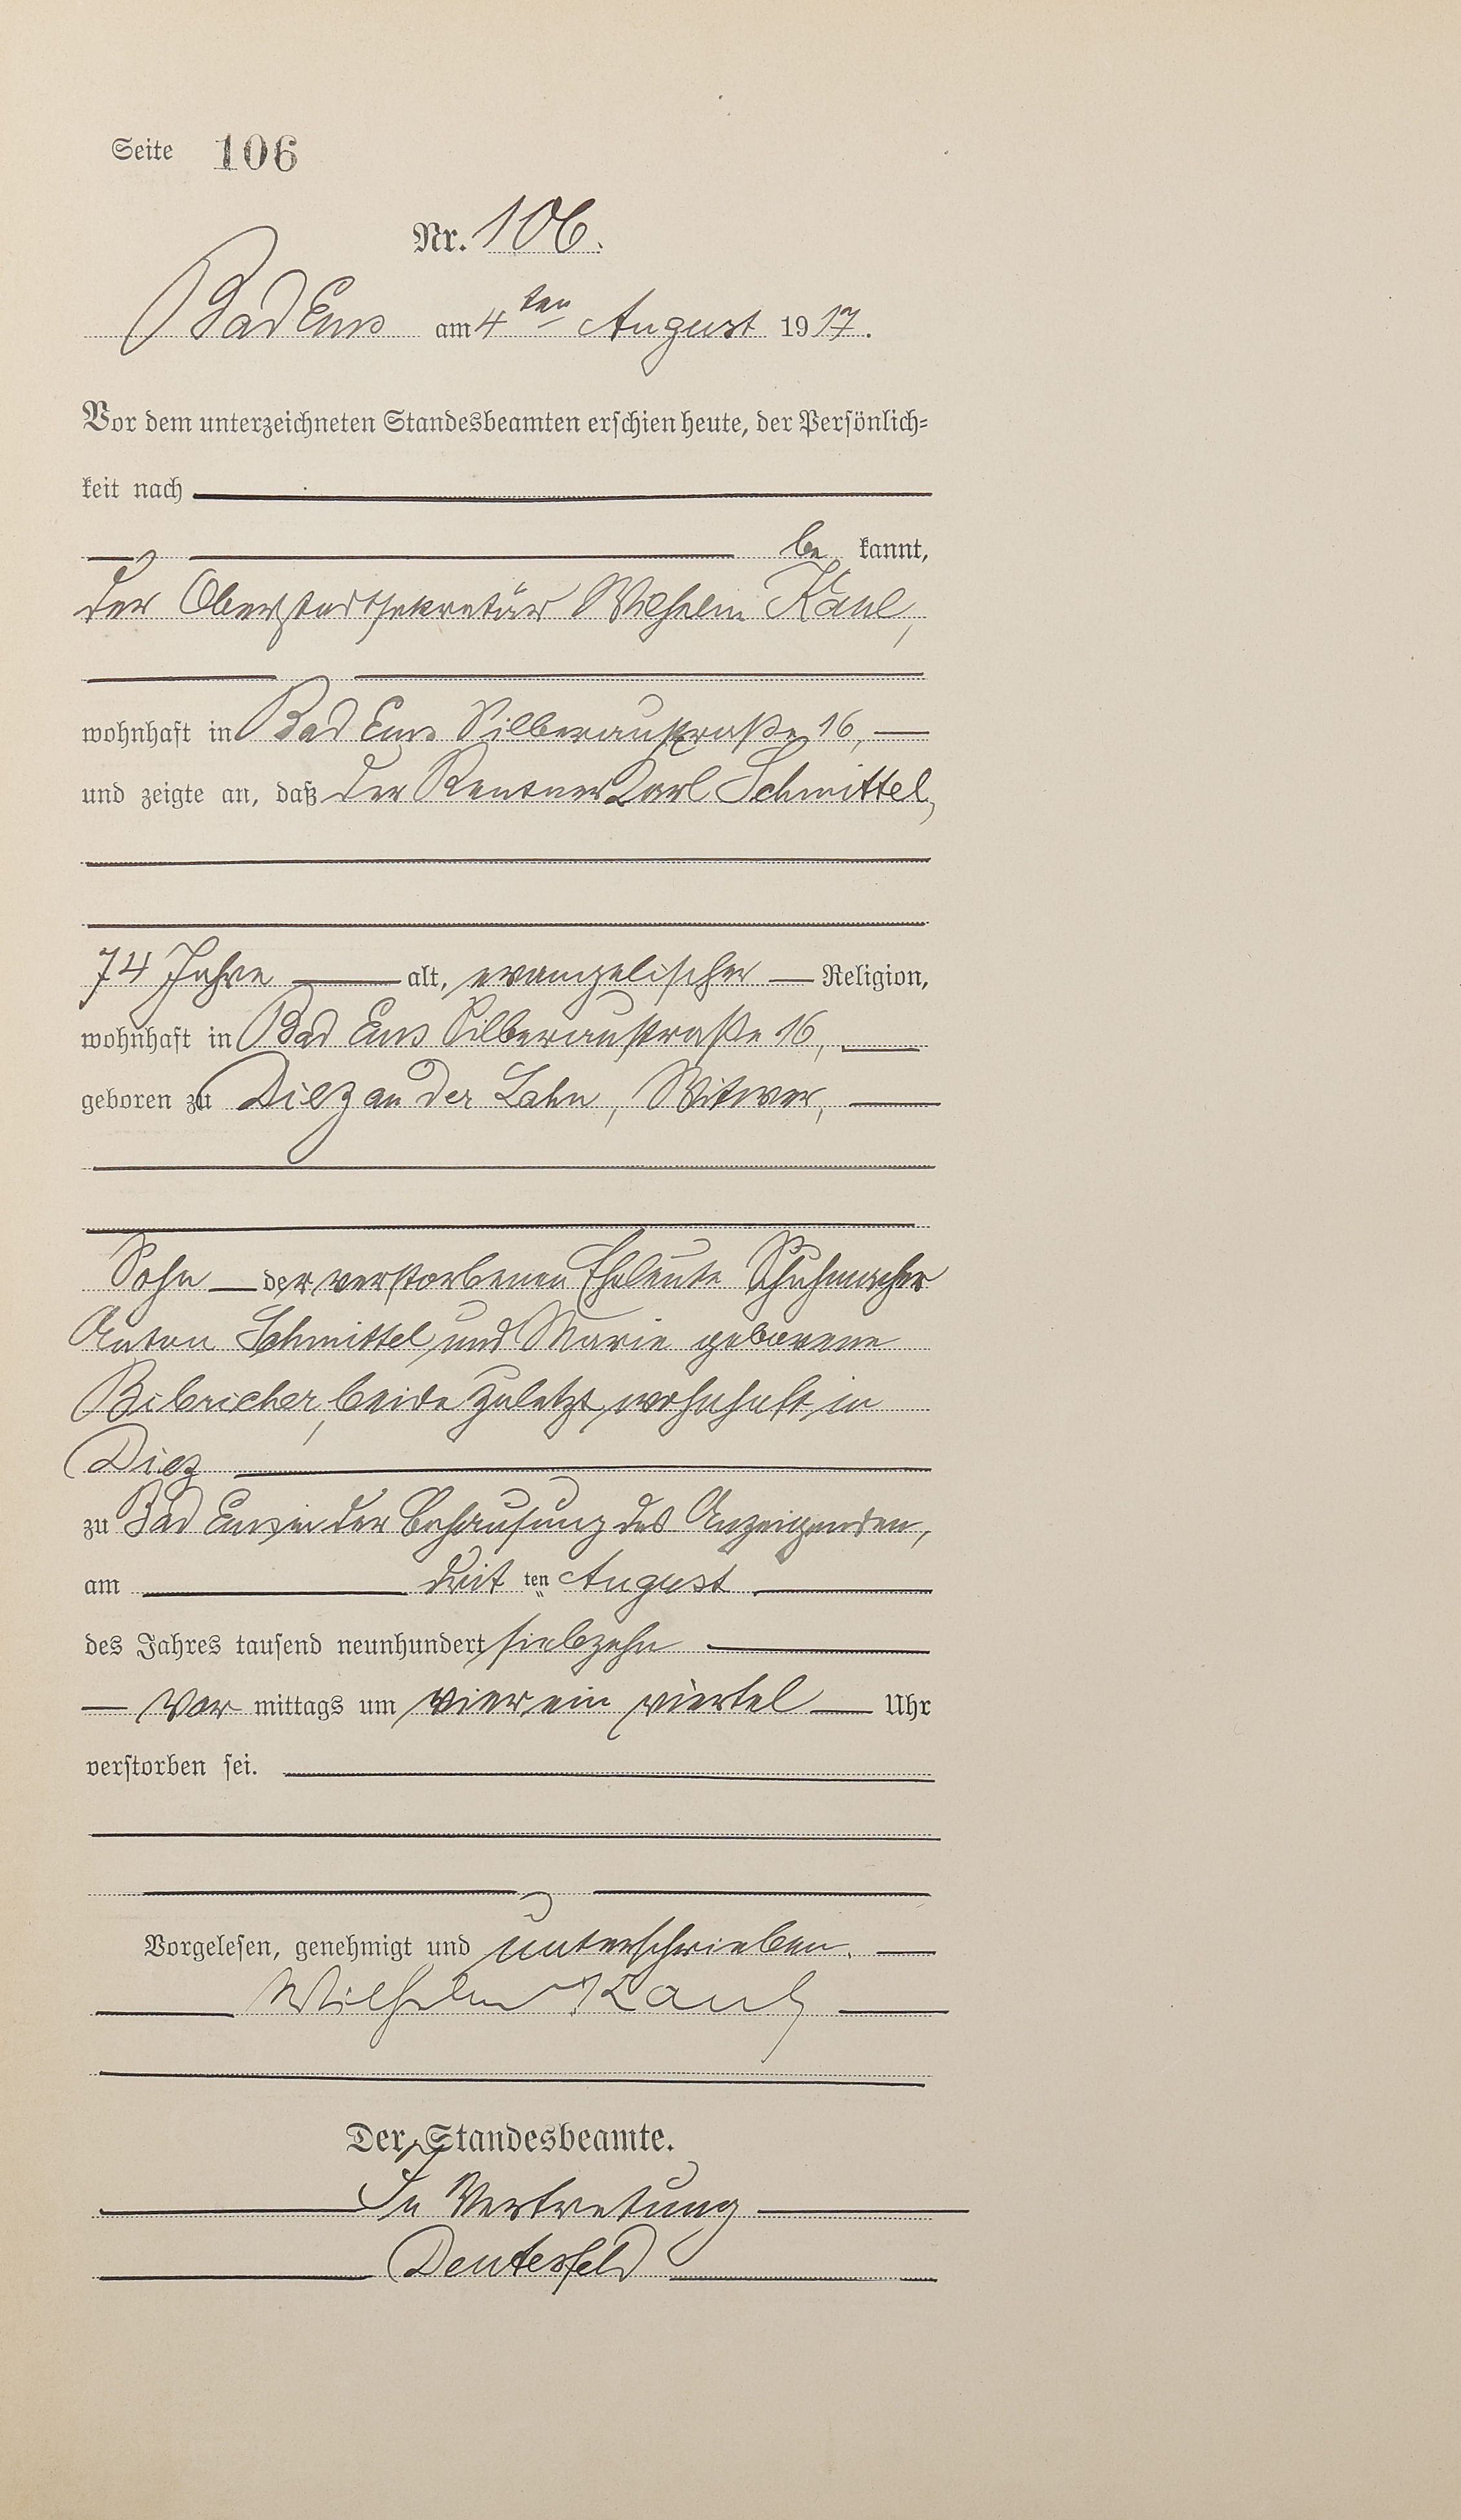 Seite 106
Nr. 106.
Bad Ems am 4ten August 1917.
Vor dem unterzeichneten Standesbeamten erschien heute, der Persönlich=
keit nach
be kannt,
der Oberstadtsekretär Wilhelm Kaul,
wohnhaft in Bad Ems Silberaustraße 16,
und zeigte an, daß der Rentner Karl Schmittel,
74 Jahre alt, evangelischer Religion,
wohnhaft in Bad Ems Silberaustraße 16,
geboren zu Diez an der Lahn, Witwer,
Sohn der verstorbenen Eheleute Schuhmacher
Anton Schmittel und Marie geborene
Bibricher, beide zuletzt wohnhaft in
Diez
zu Bad Ems in der Behausung des Anzeigenden,
am dritten August
des Jahres tausend neunhundert siebzehn
Vor mittags um vier ein viertel Uhr
verstorben sei.
Vorgelesen, genehmigt und unterschrieben.
Wilhelm Kaul
Der Standesbeamte.
In Vertretung